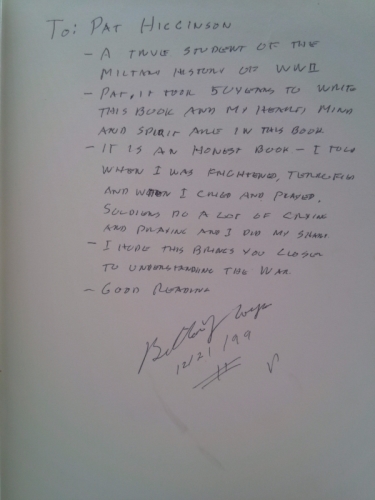 To: PAT HIGGINSON
- A TRUE STUDENT OF THE
MILTARY HISTORY OF WWII
- PAT, IT TOOK 50 YEARS TO WRITE
THIS BOOK AND MY HEART, MIND
AND SPIRIT ARE IN THIS BOOK
- IT IS AN HONEST BOOK - I TOLD
WHEN I WAS FRIGHTENED, TERRIFIED
AND WHEN I CRIED AND PRAYED.
SOLDIERS DO A LOT OF CRYING
AND PRAYING AND I DID MY SHARE.
- I HOPE THIS BRINGS YOU CLOSER
TO UNDERSTANDING THE WAR.
- GOOD READING
12/21/99